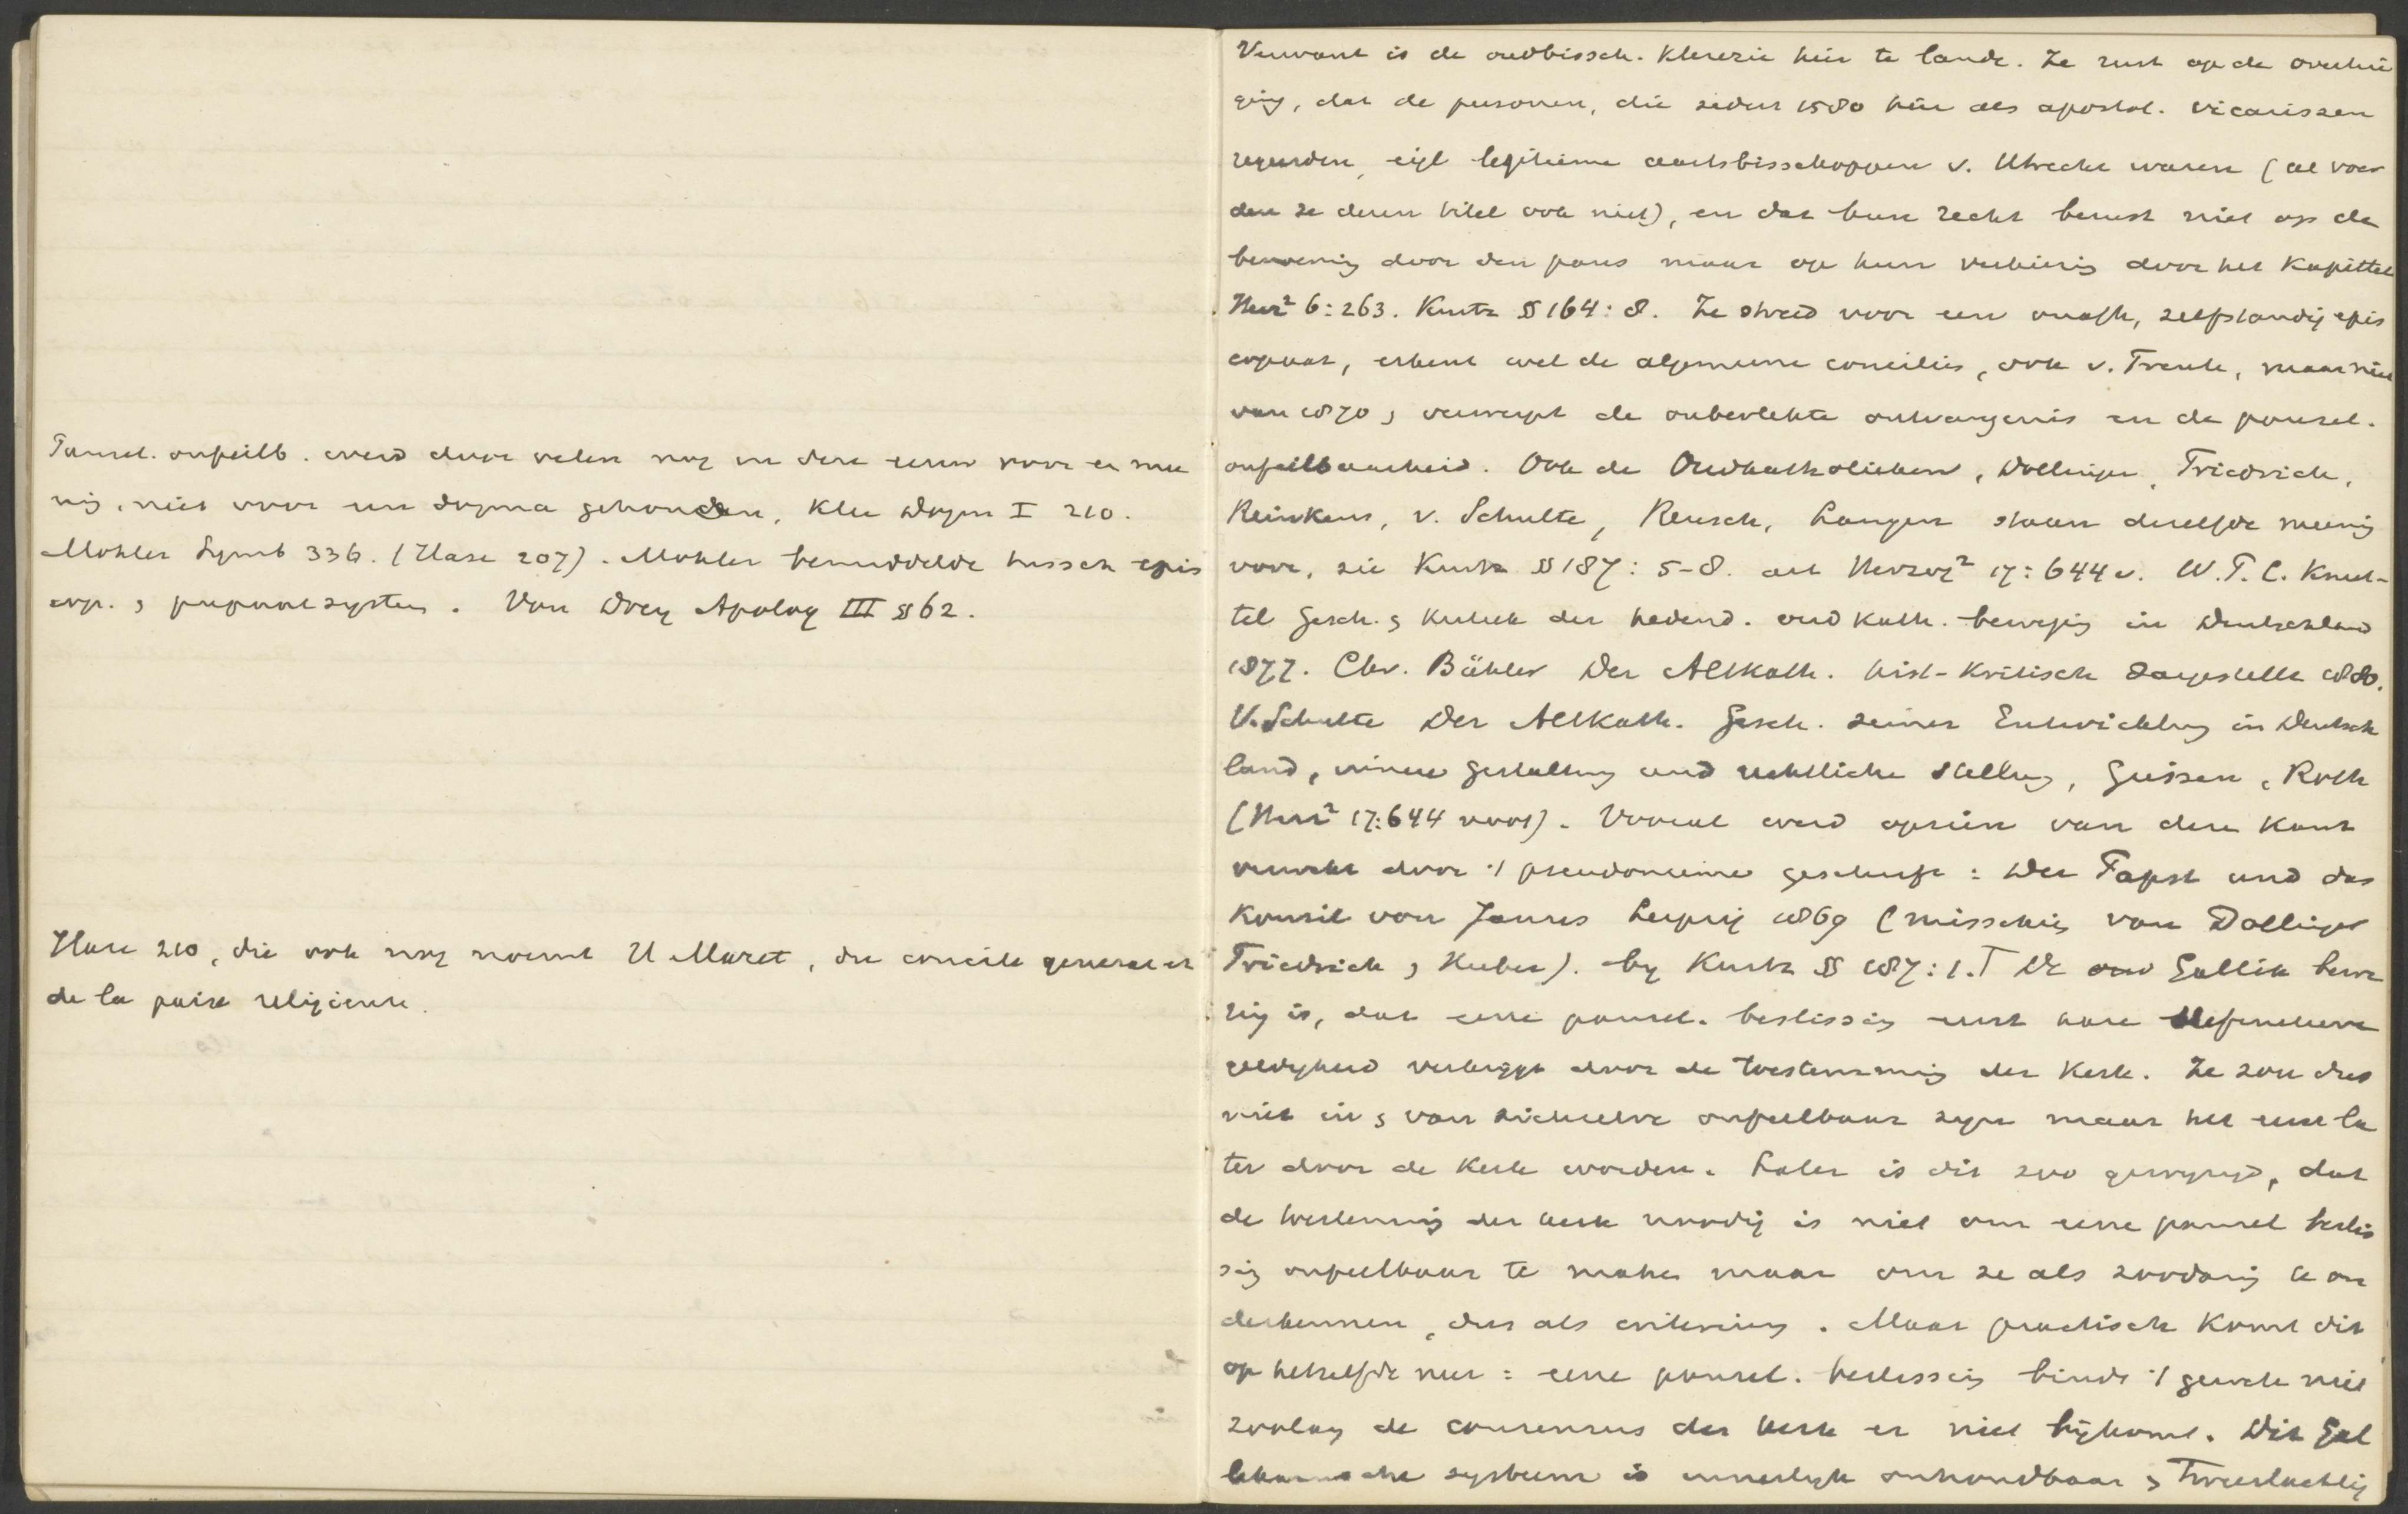 Pausel. onfeilb. werd door velen nog in deze eeuw voor een mee
nig, niet voor een dogma gehouden, Klee Dogm I 210.
Mohler Symb 336. (Hase 207). Mohler bemiddelde tussch epis
cop. & papaalsystem. Von Drey Apolog III §62.
Hase 210, die ook nog noemt H Maret, du concile general et
de la paix religieuse.
Verwant is de oudbissch. Klerezie hier te lande. Ze rust op de overtui
ging, dat de personen, die sedert 1580 hier als apostol. vicarissen
regeerden, eigl legitieme aartsbisschoppen v. Utrecht waren (al voer
den ze deren titel ook niet), en dat hun recht berust niet op de
benoeming door den paus maar op hun verkiezing door het Kapittel
Herz² 6:263. Kurtz §164:8. Ze streed voor een onafh, zelfstandig epis
copaat, erkent wel de algemeene concilies, ook v. Trente, maar niet
van 1870, verwerpt de onbevlekte ontvangenis en de pausel.
onfeilbaarheid. Ook de Oudkatholieken, Dollinger, Friedrich,
Reinkens, v. Schulte, Reusch, Langen staan dezelfde meenig
voor, zie Kurtz §187:5-8. art Herzog² 17:644 v. W.F.C. Knut-
tel Gesch. & Kritiek der hedend. oud kath. beweging in Deutschland
1877. Chr. Bühler Der Altkath. hist-kritisch dargestellt 1880.
V. Schulte Der Altkath. Gesch. seiner Entwicklung in Deutsch
land, innere Gestaltung und rechtliche Stellung, Giessen, Roth
(Herz² 17:644 noot). Vooral werd opzien van dezen kant
verwekt door 't pseudonieme geschrift: Der Papst und das
Konzil von Janus Leipzig 1869 (misschien van Dollinger
Friedrich & Huber). by Kurtz §187:1. De oud Gallik bewe
ring is, dat eene pausel. beslissing eerst hare definitieve
geldigheid verkrygt door de toestemming der Kerk. Ze zou dus
niet in & van zichzelve onfeilbaar zyn maar het eerst la
ter door de Kerk worden. Later is dit zoo gewyzigd, dat
de toestemmig der kerk noodig is niet om eene pausel beslis
sing onfeilbaar te maken maar om ze als zoodanig te on
derkennen, dus als criterium. Maar practisch komt dit
op hetzelfde neer: eene pausel. beslissing bindt 't geweten niet
zoolang de consensus der kerk er niet bijkomt. Dit Gal
likaansche systeem is innerlyk onhoudbaar & tweeslachtig